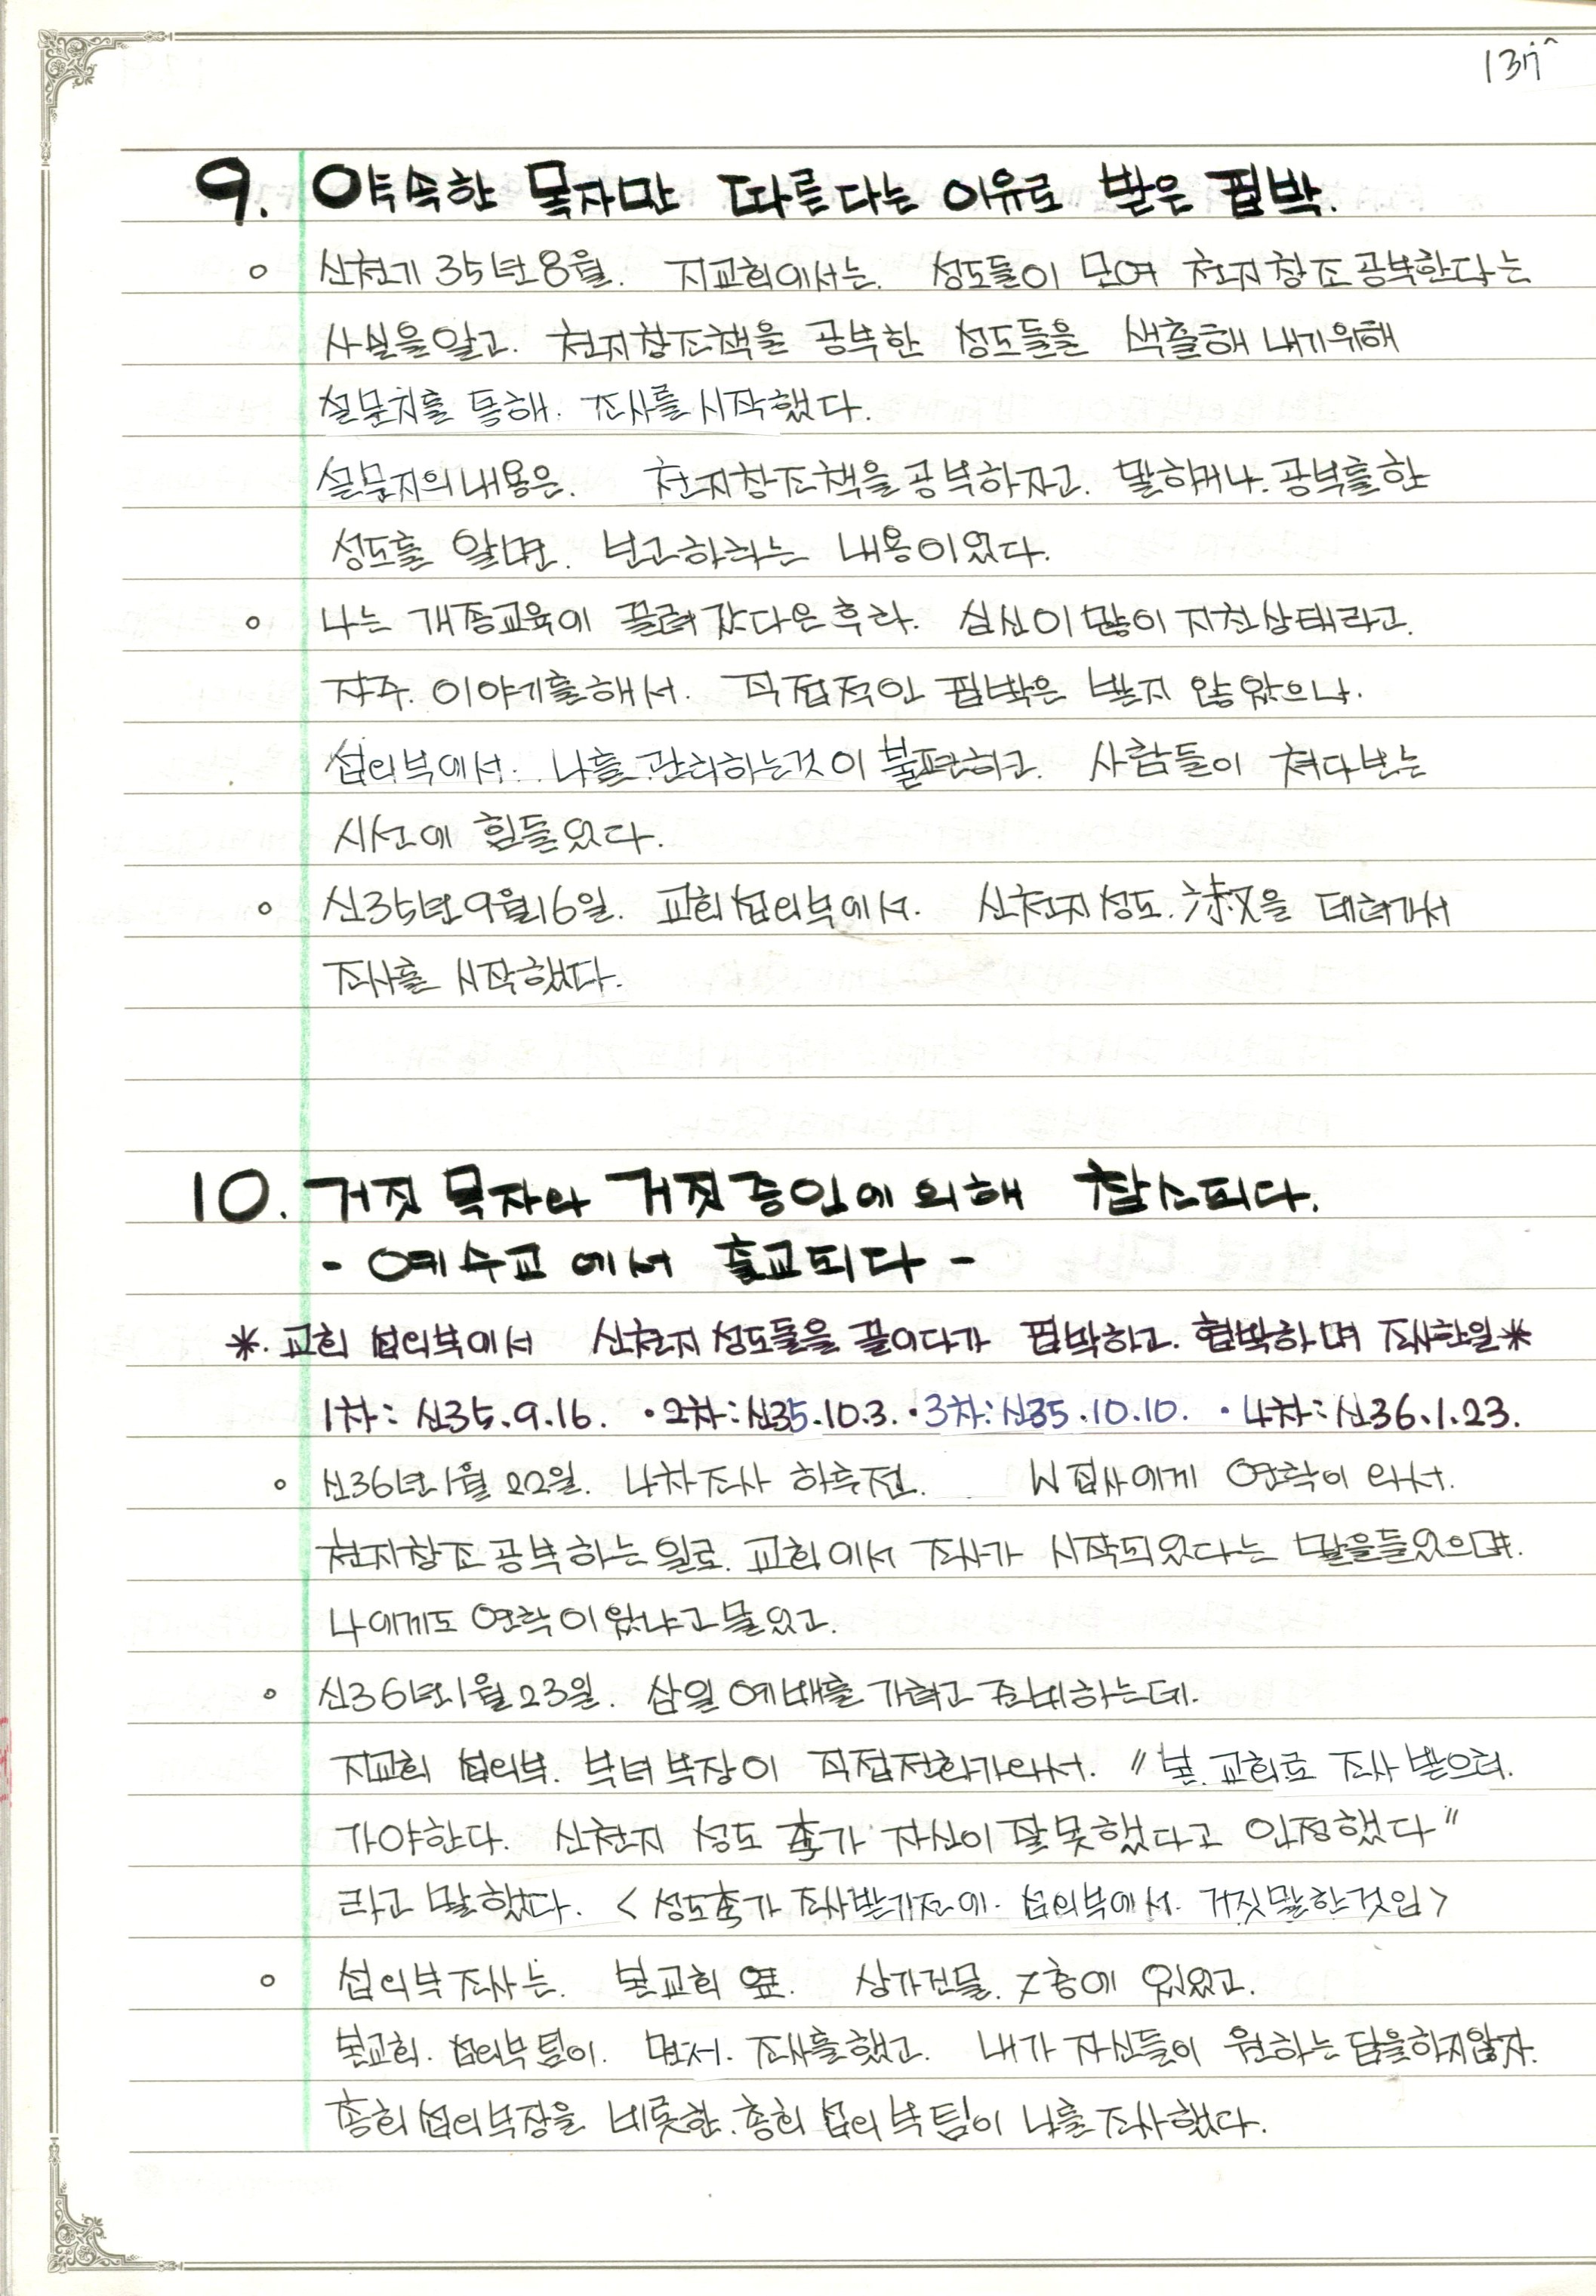 9. 약속한 목자만 따른다는 이유로 받은 핍박.
o 신천기 35년 8월. 지교회에서는. 성도들이 모여 천지창조공부한다는
사실을알고. 천지창조책을 공부한 성도들을 색출해 내기위해
설문지를 통해. 조사를 시작했다.
설문지의내용은. 천지창조책을공부하자고. 말하거나. 공부를한
성도를 알면. 보고하라는 내용이었다.
o 나는 개종교육에 끌려 갔다온후라. 심신이많이지친상태라고.
자주. 이야기를해서. 직접적인 핍박은 받지 않았으나.
섭외부에서. 나를관리하는것이 불편하고. 사람들이 쳐다보는
시선에 힘들었다.
o 신35년9월16일. 교회섭외부에서. 신천지성도. 淑을 데려가서
조사를 시작했다.
10. 거짓목자와 거짓증인에의해 참소되다.
- 예수교에서 출교되다 -
*. 교회 섭외부에서 신천지성도들을 끌어다가 핍박하고. 협박하며 조사한일*
1차: 신35.9.16. ·2차:신35.10.3. ·3차:신35.10.10. ·4차:신36.1.23.
o 신36년1월 22일. 4차조사 하루전. W집사에게 연락이 와서.
천지창조공부하는일로. 교회에서 조사가 시작되었다는 말을들었으며.
나에게도 연락이왔냐고물었고.
o 신36년1월23일. 삼일 예배를 가려고 준비하는데.
지교회 섭외부. 부녀부장이 직접전화가와서. "본. 교회로 조사 받으러.
가야한다. 신천지 성도 李가 자신이잘못했다고 인정했다"
라고 말했다. <성도李가 조사받기전에. 섭외부에서. 거짓말한것임>
o 섭외부조사는. 본교회 옆. 상가건물. 2층에 있었고.
본교회. 섭외부팀이. 먼저. 조사를했고. 내가 자신들이 원하는답을하지않자.
총회섭외부장을 비롯한. 총회섭외부팀이 나를조사했다.